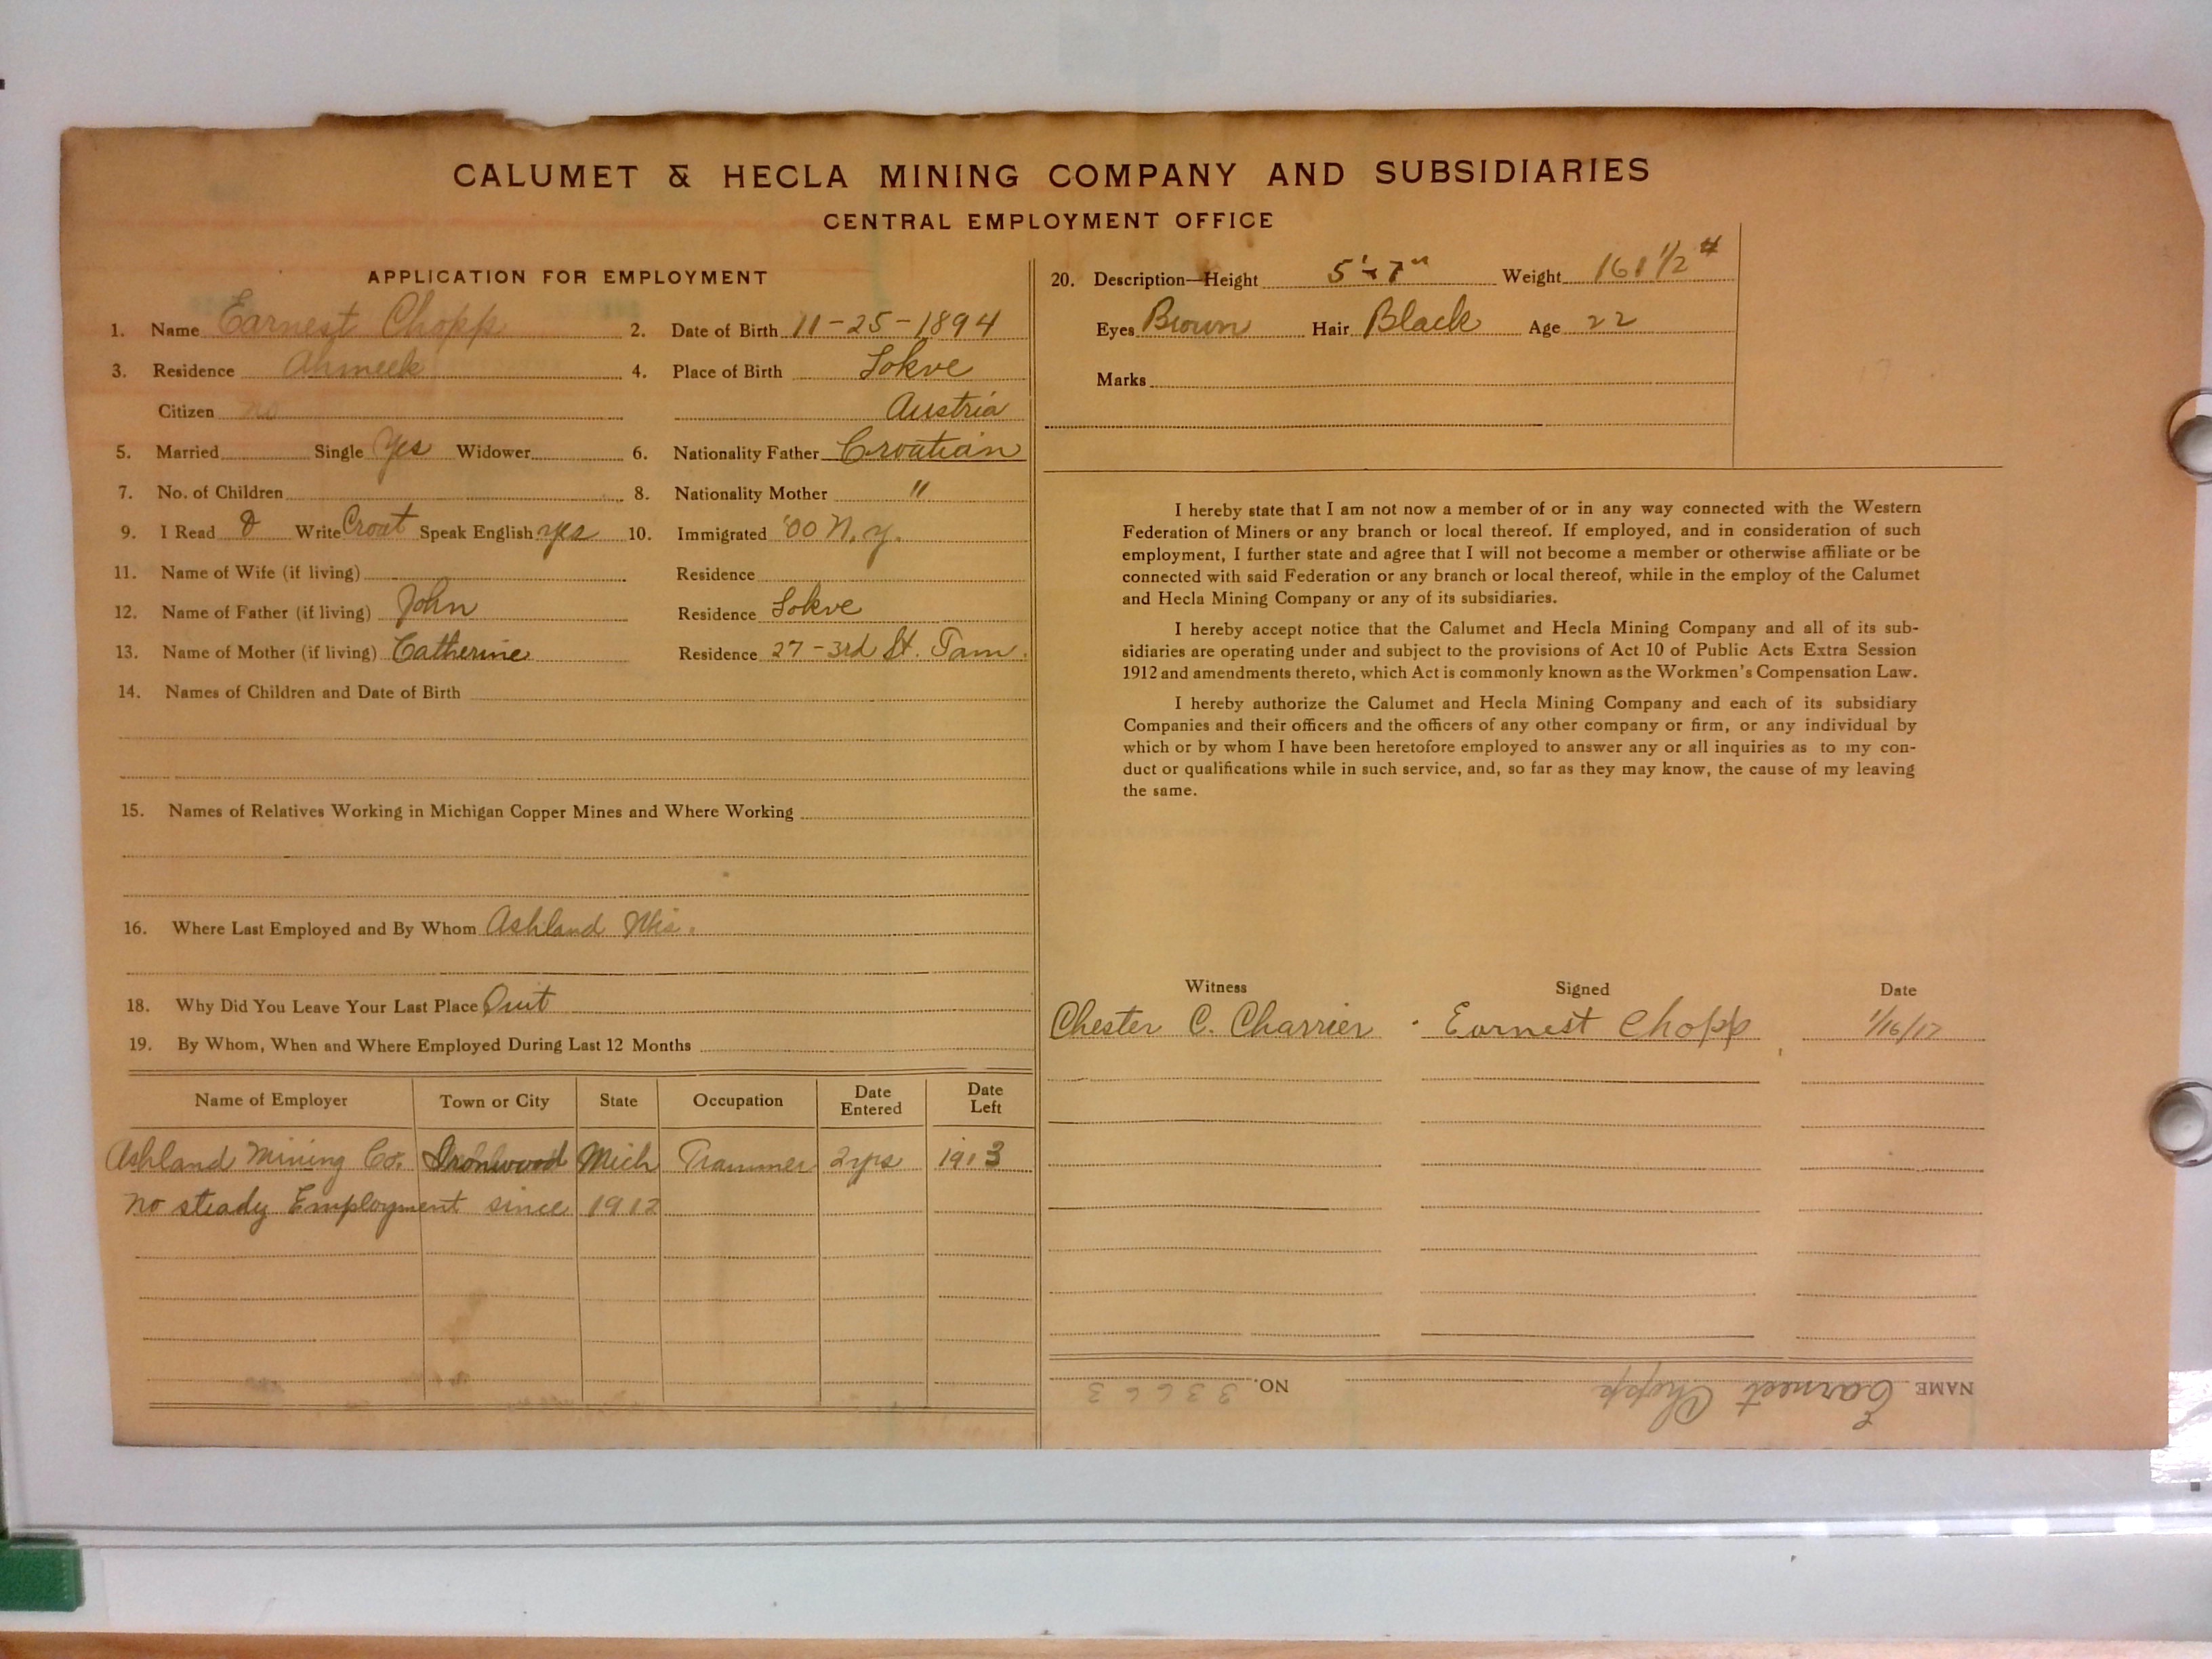 CALUMET & HECLA MINING COMPANY AND SUBSIDIARIES
CENTRAL EMPLOYMENT OFFICE
APPLICATION FOR EMPLOYMENT
1. Name Earnest Chopp 2. Date of Birth 11-25-1894
3. Residence Ahmeek 4. Place of Birth Lokve
Citizen no Austria
5. Married Single Yes Widower 6. Nationality Father Croatian
7. No. of Children 8. Nationality Mother "
9. I Read & Write Croat Speak English yes 10. Immigrated '00 N.Y.
11. Name of Wife (if living) Residence
12. Name of Father (if living) John Residence Lokve
13. Name of Mother (if living) Catherine Residence 27-3rd St. Tam.
14. Names of Children and Date of Birth
15. Names of Relatives Working in Michigan Copper Mines and Where Working
16. Where Last Employed and By Whom Ashland Wis.
18. Why Did You Leave Your Last Place Quit
19. By Whom, When and Where Employed During Last 12 Months
Name of Employer Town or City State Occupation Date Entered Date Left
Ashland Mining Co. Ironwood Mich Trammer 2yrs 1913
No steady Employment since 1912
20. Description—Height 5'-7" Weight 161 1/2 #
Eyes Brown Hair Black Age 22
Marks
I hereby state that I am not now a member of or in any way connected with the Western
Federation of Miners or any branch or local thereof. If employed, and in consideration of such
employment, I further state and agree that I will not become a member or otherwise affiliate or be
connected with said Federation or any branch or local thereof, while in the employ of the Calumet
and Hecla Mining Company or any of its subsidiaries.
I hereby accept notice that the Calumet and Hecla Mining Company and all of its sub-
sidiaries are operating under and subject to the provisions of Act 10 of Public Acts Extra Session
1912 and amendments thereto, which Act is commonly known as the Workmen's Compensation Law.
I hereby authorize the Calumet and Hecla Mining Company and each of its subsidiary
Companies and their officers and the officers of any other company or firm, or any individual by
which or by whom I have been heretofore employed to answer any or all inquiries as to my con-
duct or qualifications while in such service, and, so far as they may know, the cause of my leaving
the same.
Witness Signed Date
Chester C. Charrier Earnest Chopp 1/16/17
NAME Earnest Chopp NO. 33663